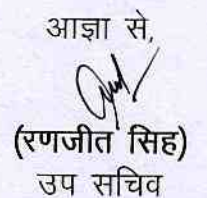 आज्ञा से,
(रणजीत सिंह)
उप सचिव